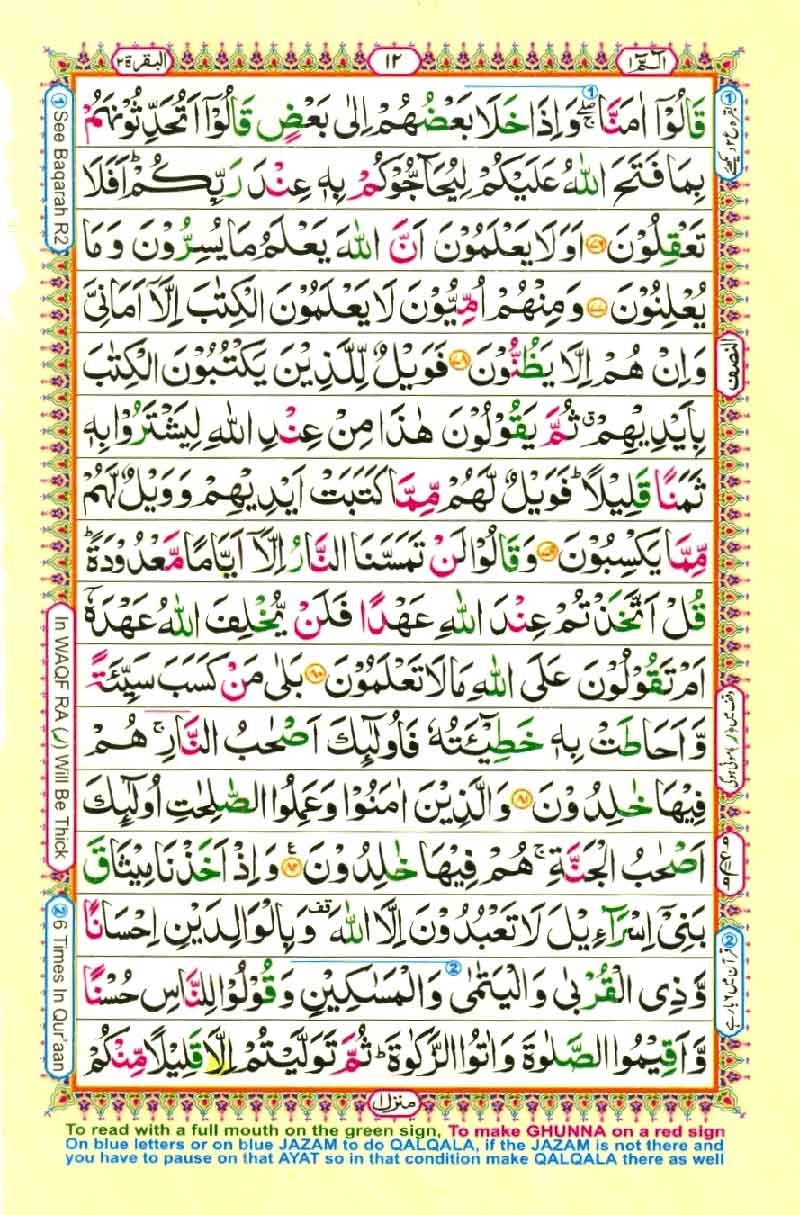 الٓمّٓ ١
١٢
البقرة ٢
قَالُوْۤا اٰمَنَّا ۖۚ وَاِذَا خَلَا بَعْضُهُمْ اِلٰى بَعْضٍ قَالُوْۤا اَتُحَدِّثُوْنَهُمْ
بِمَا فَتَحَ اللّٰهُ عَلَيْكُمْ لِيُحَآجُّوْكُمْ بِهٖ عِنْدَ رَبِّكُمْ ؕ اَفَلَا
تَعْقِلُوْنَ ﴿۷۶﴾ اَوَلَا يَعْلَمُوْنَ اَنَّ اللّٰهَ يَعْلَمُ مَا يُسِرُّوْنَ وَمَا
يُعْلِنُوْنَ ﴿۷۷﴾ وَمِنْهُمْ اُمِّيُّوْنَ لَا يَعْلَمُوْنَ الْكِتٰبَ اِلَّاۤ اَمَانِىَّ
وَاِنْ هُمْ اِلَّا يَظُنُّوْنَ ﴿۷۸﴾ فَوَيْلٌ لِّلَّذِيْنَ يَكْتُبُوْنَ الْكِتٰبَ
بِاَيْدِيْهِمْ ۗ ثُمَّ يَقُوْلُوْنَ هٰذَا مِنْ عِنْدِ اللّٰهِ لِيَشْتَرُوْا بِهٖ
ثَمَنًا قَلِيْلًا ؕ فَوَيْلٌ لَّهُمْ مِّمَّا كَتَبَتْ اَيْدِيْهِمْ وَوَيْلٌ لَّهُمْ
مِّمَّا يَكْسِبُوْنَ ﴿۷۹﴾ وَقَالُوْا لَنْ تَمَسَّنَا النَّارُ اِلَّاۤ اَيَّامًا مَّعْدُوْدَةً ؕ
قُلْ اَتَّخَذْتُمْ عِنْدَ اللّٰهِ عَهْدًا فَلَنْ يُّخْلِفَ اللّٰهُ عَهْدَهٗۤ
اَمْ تَقُوْلُوْنَ عَلَى اللّٰهِ مَا لَا تَعْلَمُوْنَ ﴿۸۰﴾ بَلٰى مَنْ كَسَبَ سَيِّئَةً
وَّاَحَاطَتْ بِهٖ خَطِيْٓئَتُهٗ فَاُولٰٓئِكَ اَصْحٰبُ النَّارِ ۚ هُمْ
فِيْهَا خٰلِدُوْنَ ﴿۸۱﴾ وَالَّذِيْنَ اٰمَنُوْا وَعَمِلُوا الصّٰلِحٰتِ اُولٰٓئِكَ
اَصْحٰبُ الْجَنَّةِ ۚ هُمْ فِيْهَا خٰلِدُوْنَ ﴿۸۲﴾ وَاِذْ اَخَذْنَا مِيْثَاقَ
بَنِىْۤ اِسْرَآءِيْلَ لَا تَعْبُدُوْنَ اِلَّا اللّٰهَ قف وَبِالْوَالِدَيْنِ اِحْسَانًا
وَّذِى الْقُرْبٰى وَالْيَتٰمٰى وَالْمَسٰكِيْنِ وَقُوْلُوْا لِلنَّاسِ حُسْنًا
وَّاَقِيْمُوا الصَّلٰوةَ وَاٰتُوا الزَّكٰوةَ ؕ ثُمَّ تَوَلَّيْتُمْ اِلَّا قَلِيْلًا مِّنْكُمْ
النصف
① See Baqarah R2
In WAQF RA (ر) Will Be Thick
② 6 Times In Qur'aan
منزل
To read with a full mouth on the green sign, To make GHUNNA on a red sign
On blue letters or on blue JAZAM to do QALQALA, if the JAZAM is not there and
you have to pause on that AYAT so in that condition make QALQALA there as well